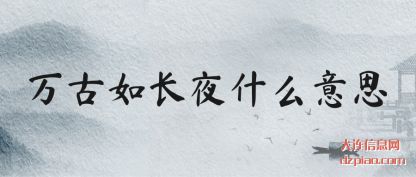 万古如长夜什么意思
大连信息网
dlzpiao.com